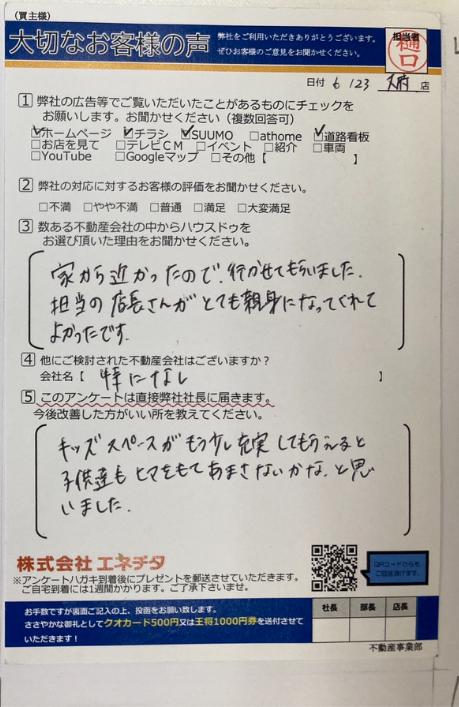 (買主様)
大切なお客様の声
弊社をご利用いただきありがとうございます。
ぜひお客様のご意見をお聞かせください。
担当者
樋口
日付 6/23 店
1 弊社の広告等でご覧いただいたことがあるものにチェックを
お願いします。お聞かせください（複数回答可）
☑ホームページ ☑チラシ ☑SUUMO □athome ☑道路看板
□お店を見て □テレビCM □イベント □紹介 □車両
□YouTube □Googleマップ □その他【 】
2 弊社の対応に対するお客様の評価をお聞かせください。
□不満 □やや不満 □普通 □満足 □大変満足
3 数ある不動産会社の中からハウスドゥを
お選び頂いた理由をお聞かせください。
家から近かったので、行かせてもらいました。
担当の店長さんがとても親身になってくれて
よかったです。
4 他にご検討された不動産会社はございますか？
会社名【 特になし 】
5 このアンケートは直接弊社社長に届きます。
今後改善した方がいい所を教えてください。
キッズスペースがもう少し充実してもらえると
子供達もヒマをもてあまさないかな、と思
いました。
株式会社 エネチタ
※アンケートハガキ到着後にプレゼントを郵送させていただきます。
ご自宅到着には1週間かかります。ご了承下さいませ。
QRコードからも
ご回答頂けます。
お手数ですが裏面ご記入の上、投函をお願い致します。
ささやかな御礼としてクオカード500円又は王将1000円券を送付させて
いただきます！
社長 部長 店長
不動産事業部